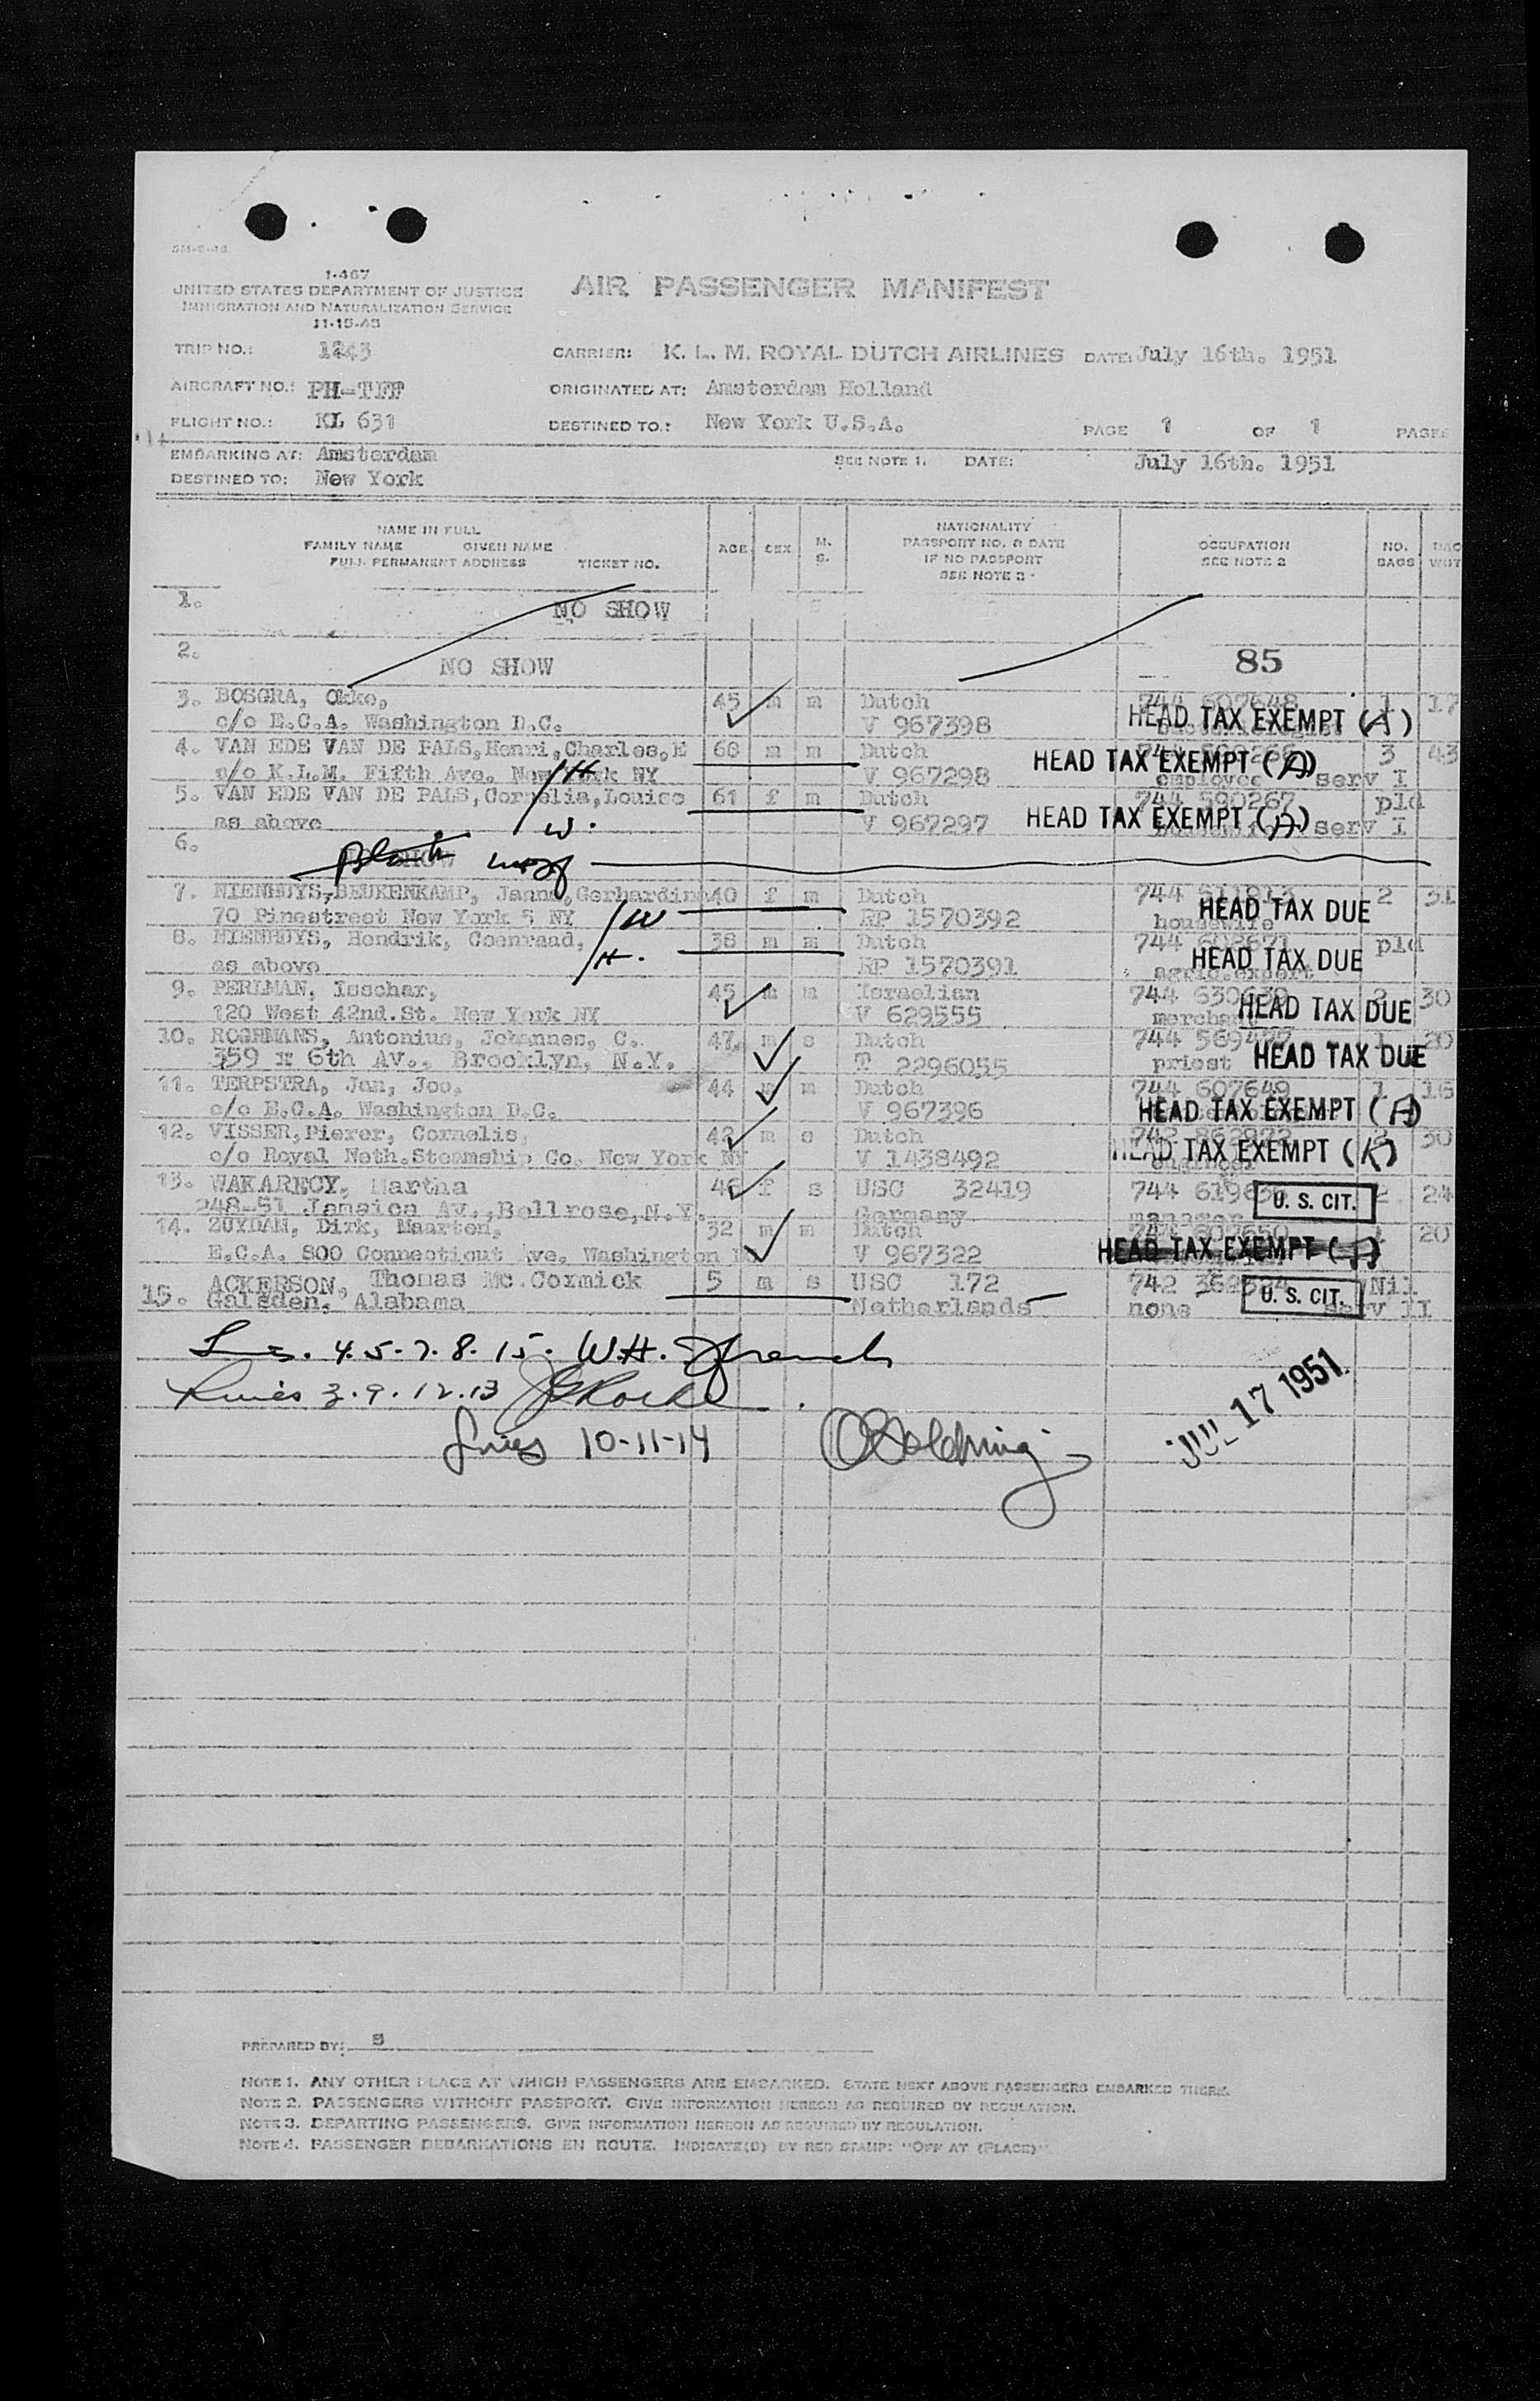 1-467
UNITED STATES DEPARTMENT OF JUSTICE
IMMIGRATION AND NATURALIZATION SERVICE
11-15-43
AIR PASSENGER MANIFEST
TRIP NO.: 1243 CARRIER: K. L. M. ROYAL DUTCH AIRLINES DATE: July 16th. 1951
AIRCRAFT NO.: PH-TFF ORIGINATED AT: Amsterdam Holland
FLIGHT NO.: KL 631 DESTINED TO.: New York U.S.A. PAGE 1 OF 1 PAGES
EMBARKING AT: Amsterdam SEE NOTE 1. DATE: July 16th. 1951
DESTINED TO: New York
NAME IN FULL
FAMILY NAME GIVEN NAME
FULL PERMANENT ADDRESS TICKET NO.
AGE SEX M. S.
NATIONALITY
PASSPORT NO. & DATE
IF NO PASSPORT
SEE NOTE 2
OCCUPATION
SEE NOTE 2
NO. BAGS
1. NO SHOW
2. NO SHOW 85
3. BOSGRA, Okke, 45 m m Dutch 744 607648 1 17
c/o E.C.A. Washington D.C. V 967398 HEAD TAX EXEMPT (A)
4. VAN EDE VAN DE PALS, Henri, Charles, E 68 m m Dutch 3 43
c/o K.L.M. Fifth Ave. New York NY V 967298 HEAD TAX EXEMPT (A) employee serv I
/H
5. VAN EDE VAN DE PALS, Cornelia, Louise 61 f m Dutch 744 590267 pld
as above V 967297 HEAD TAX EXEMPT (A) serv I
W.
6.
7. NIENHUYS-BEUKENKAMP, Janna, Gerhardina 40 f m Dutch 744 2 31
70 Pinestreet New York 5 NY RP 1570392 housewife HEAD TAX DUE
/W
8. NIENHUYS, Hendrik, Coenraad, 38 m m Dutch 744 pld
as above RP 1570391 agric.expert HEAD TAX DUE
/H.
9. PERLMAN, Isschar, 45 m m Israelian 744 630639 2 30
120 West 42nd.St. New York NY V 629555 merchant HEAD TAX DUE
10. ROGHMANS, Antonius, Johannes, C. 47 m s Dutch 744 1 20
359 6th Av., Brooklyn, N.Y. T 2296055 priest HEAD TAX DUE
11. TERPSTRA, Jan, Joo, 44 m m Dutch 744 607649 1 16
c/o E.C.A. Washington D.C. V 967396 HEAD TAX EXEMPT (A)
12. VISSER, Pierer, Cornelis, 42 m s Dutch 2 30
c/o Royal Neth.Steamship Co. New York NY V 1438492 HEAD TAX EXEMPT (K)
13. WAKARECY, Martha 46 f s USC 32419 744 2 24
248-51 Jamaica Av., Bellrose, N.Y. Germany manager U. S. CIT.
14. ZUYDAM, Dirk, Maarten, 32 m m Dutch 1 20
E.C.A. 800 Connecticut Ave. Washington V 967322 HEAD TAX EXEMPT (A)
15. ACKERSON, Thomas Mc.Cormick 5 m s USC 172 742 Nil
Galsden, Alabama Netherlands none U. S. CIT. serv II
4. 5. 7. 8. 15. W.H. French
3. 9. 12. 13
Lines 10-11-14
JUL 17 1951
PREPARED BY: S
NOTE 1. ANY OTHER PLACE AT WHICH PASSENGERS ARE EMBARKED. STATE NEXT ABOVE PASSENGERS EMBARKED THERE.
NOTE 2. PASSENGERS WITHOUT PASSPORT. GIVE INFORMATION HEREON AS REQUIRED BY REGULATION.
NOTE 3. DEPARTING PASSENGERS. GIVE INFORMATION HEREON AS REQUIRED BY REGULATION.
NOTE 4. PASSENGER DEBARKATIONS EN ROUTE. INDICATE(D) BY RED STAMP: "OFF AT (PLACE)"